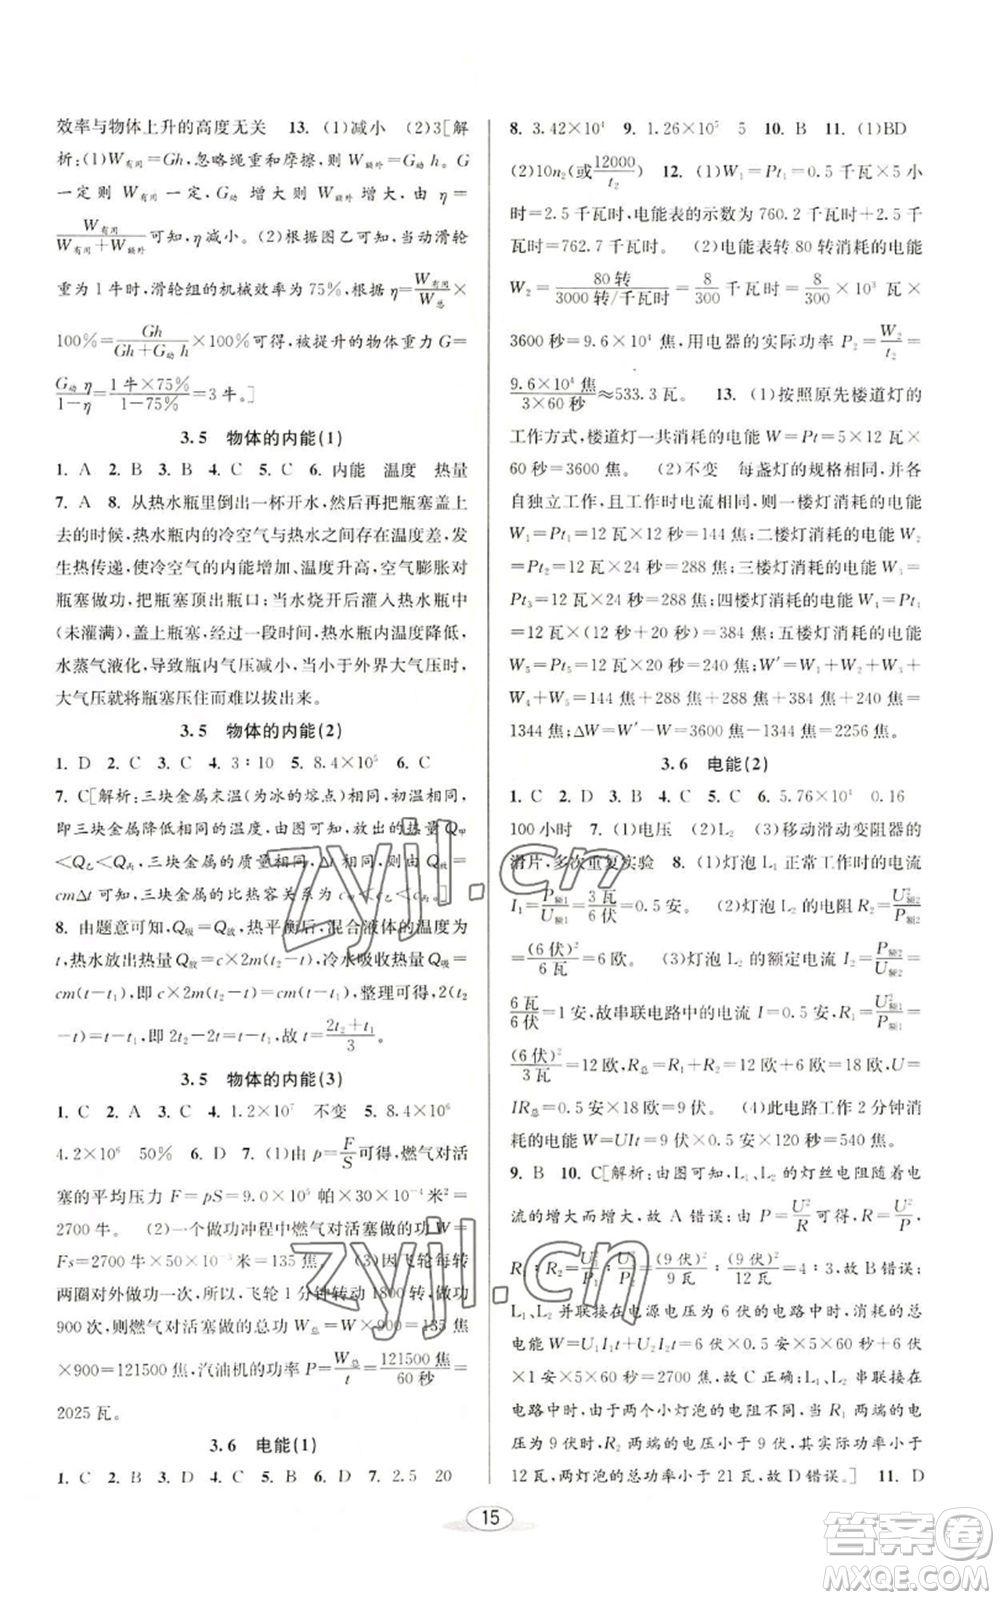 效率与物体上升的高度无关　13. (1)减小　(2)3[解
析:(1)W有用=Gh,忽略绳重和摩擦,则 W额外=G动 h。G
一定则 W有用 一定, G动 增大则 W额外 增大, 由 η=
W有用/(W有用+W额外)可知,η减小。(2)根据图乙可知,当动滑轮
重为 1 牛时,滑轮组的机械效率为 75%,η=W有用/W总×
100%=Gh/(Gh+G动 h)×100%可得,被提升的物体重力 G=
G动 η/(1-η)=1 牛×75%/(1-75%)=3 牛。]
3.5　物体的内能(1)
1. A　2. B　3. B　4. C　5. C　6. 内能　温度　热量
7. A　8. 从热水瓶里倒出一杯开水,然后再把瓶塞盖上
去的时候,热水瓶内的冷空气与热水之间存在温度差,发
生热传递,使冷空气的内能增加、温度升高,空气膨胀对
瓶塞做功,把瓶塞顶出瓶口;当水烧开后灌入热水瓶中
(未灌满),盖上瓶塞,经过一段时间,热水瓶内温度降低,
水蒸气液化,导致瓶内气压减小,当小于外界大气压时,
大气压就将瓶塞压住而难以拔出来。
3.5　物体的内能(2)
1. D　2. C　3. C　4. 3∶10　5. 8.4×10⁵　6. C
7. C[解析:三块金属末温(为冰的熔点)相同,初温相同,
即三块金属降低相同的温度,放出的热量 Q甲
<Q乙<Q丙,三块金属的质量相同,Δt 相同,根据 Q=
cmΔt 可知,三块金属的比热容关系为 c甲<c乙<c丙。]
8. 由题意可知,Q吸=Q放,热平衡后,混合液体的温度为
t,热水放出热量 Q放=c×2m(t₂-t),冷水吸收热量 Q吸=
cm(t-t₁),即 c×2m(t₂-t)=cm(t-t₁),整理可得,2(t₂
-t)=t-t₁,即 2t₂-2t=t-t₁,故 t=(2t₂+t₁)/3。
3.5　物体的内能(3)
1. C　2. A　3. C　4. 1.2×10⁷　不变　5. 8.4×10⁶
4.2×10⁶　50%　6. D　7. (1)由 p=F/S可得,燃气对活
塞的平均压力 F=pS=9.0×10⁵ 帕×30×10⁻⁴ 米²=
2700 牛。　(2)一个做功冲程中燃气对活塞做的功 W=
Fs=2700 牛×50×10⁻³ 米=135 焦。　(3)因飞轮每转
两圈对外做功一次,所以,飞轮 1 分钟转动 1800 转,做功
900 次,则燃气对活塞做的总功 W总=W×900=135 焦
×900=121500 焦,汽油机的功率 P=W总/t=121500 焦/60 秒=
2025 瓦。
3.6　电能(1)
1. C　2. B　3. D　4. C　5. D　6. D　7. 2.5　20
8. 3.42×10⁴　9. 1.26×10⁵　5　10. B　11. (1)BD
(2)10n₂(或12000/t₂)　12. (1)W₁=Pt₁=0.5 千瓦×5 小
时=2.5 千瓦时,电能表的示数为 760.2 千瓦时+2.5 千
瓦时=762.7 千瓦时。　(2)电能表转 80 转消耗的电能
W₂=80 转/(3000 转/千瓦时)=8/300千瓦时=8/300×10³ 瓦×
3600 秒=9.6×10⁴ 焦,用电器的实际功率 P₂=W₂/t₂=
9.6×10⁴ 焦/(3×60 秒)≈533.3 瓦。　13. (1)按照原先楼道灯的
工作方式,楼道灯一共消耗的电能 W=Pt=5×12 瓦×
60 秒=3600 焦。　(2)不变　每盏灯的规格相同,并各
自独立工作,且工作时电流相同,则一楼灯消耗的电能
W₁=Pt₁=12 瓦×12 秒=144 焦;二楼灯消耗的电能 W₂=
Pt₂=12 瓦×24 秒=288 焦;三楼灯消耗的电能 W₃=
Pt₃=12 瓦×24 秒=288 焦;四楼灯消耗的电能 W₄=
Pt₄=12 瓦×(12 秒+20 秒)=384 焦;五楼灯消耗的电能
W₅=Pt₅=12 瓦×20 秒=240 焦;W′=W₁+W₂+W₃+
W₄+W₅=144 焦+288 焦+288 焦+384 焦+240 焦=
1344 焦;ΔW=W′-W=3600 焦-1344 焦=2256 焦。
3.6　电能(2)
1. C　2. D　3. D　4. C　5. C　6. 5.76×10⁴　0.16
100 小时　7. (1)电压　(2)L₂　(3)移动滑动变阻器的
滑片,多次重复实验　8. (1)灯泡 L₁ 正常工作时的电流
I₁=P额1/U额1=3 瓦/6 伏=0.5 安。　(2)灯泡 L₂ 的电阻 R₂=U²额2/P额2
=(6 伏)²/6 瓦=6 欧。　(3)灯泡 L₂ 的额定电流 I₂=P额2/U额2=
6 瓦/6 伏=1 安,故串联电路中的电流 I=0.5 安,R₁=U²额1/P额1=
(6 伏)²/3 瓦=12 欧,R总=R₁+R₂=12 欧+6 欧=18 欧,U=
IR总=0.5 安×18 欧=9 伏。　(4)此电路工作 2 分钟消
耗的电能 W=UIt=9 伏×0.5 安×120 秒=540 焦。
9. B　10. C[解析:由图可知,L₁、L₂ 的灯丝电阻随电
流的增大而增大,故 A 错误;由 P=U²/R可得,R=U²/P,
R₁∶R₂=U₁²/P₁∶U₂²/P₂=(9 伏)²/9 瓦∶(9 伏)²/12 瓦=4∶3,故 B 错误;
L₁、L₂ 并联接在电源电压为 6 伏的电路中时,消耗的电
能 W=U₁I₁t+U₂I₂t=6 伏×0.5 安×5×60 秒+6 伏
×1 安×5×60 秒=2700 焦,故 C 正确;L₁、L₂ 串联接在
电路中时,由于两个小灯泡的电阻不同,故 R₁ 两端的电
压小于 9 伏,R₂ 两端的电压小于 9 伏,其实际功率小于
12 瓦,两灯泡的总功率小于 21 瓦,故 D 错误。]　11. D
15
zyjl.cn
zyjl.cn
答案圈
MXQE.COM